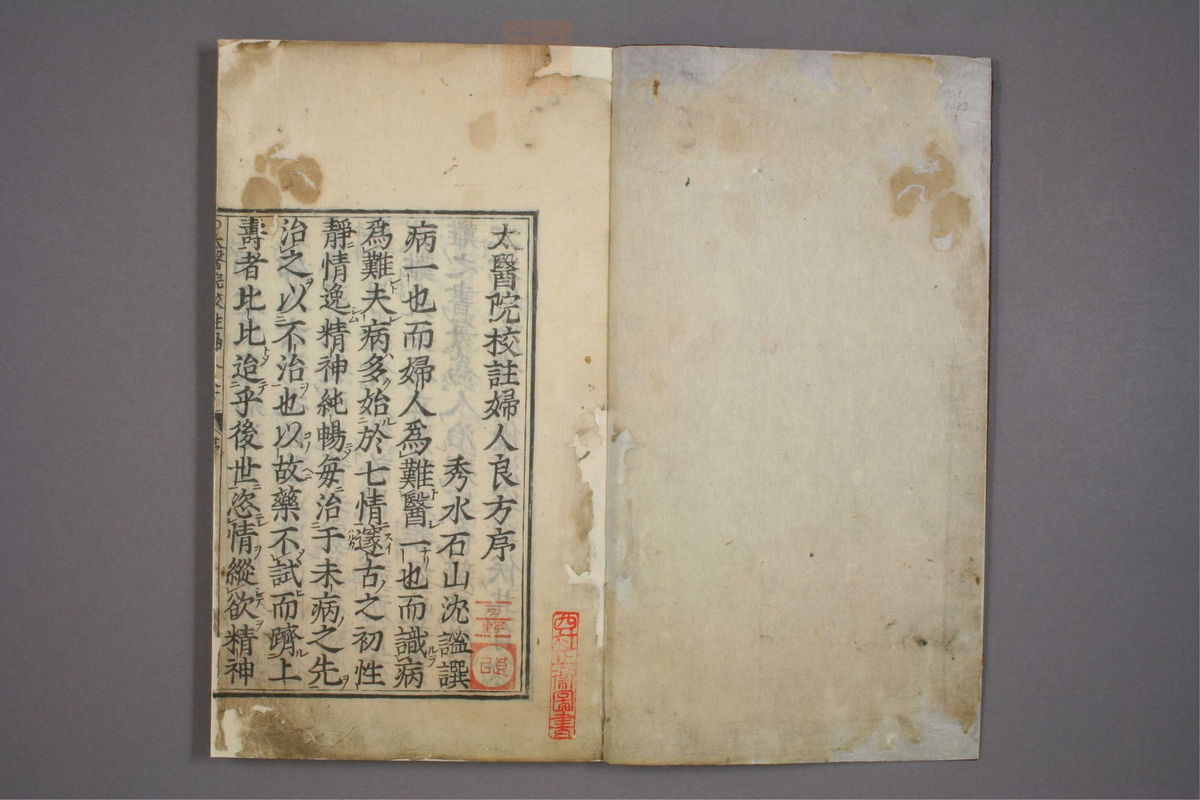 太醫院校註婦人良方序
秀水石山沈謐譔
病一也而婦人爲難醫一也而識病
爲難夫病多始於七情邃古之初性
靜情逸精神純暢每治于未病之先
治之以不治也以故藥不試而躋上
壽者比比迨乎後世恣情縱欲精神